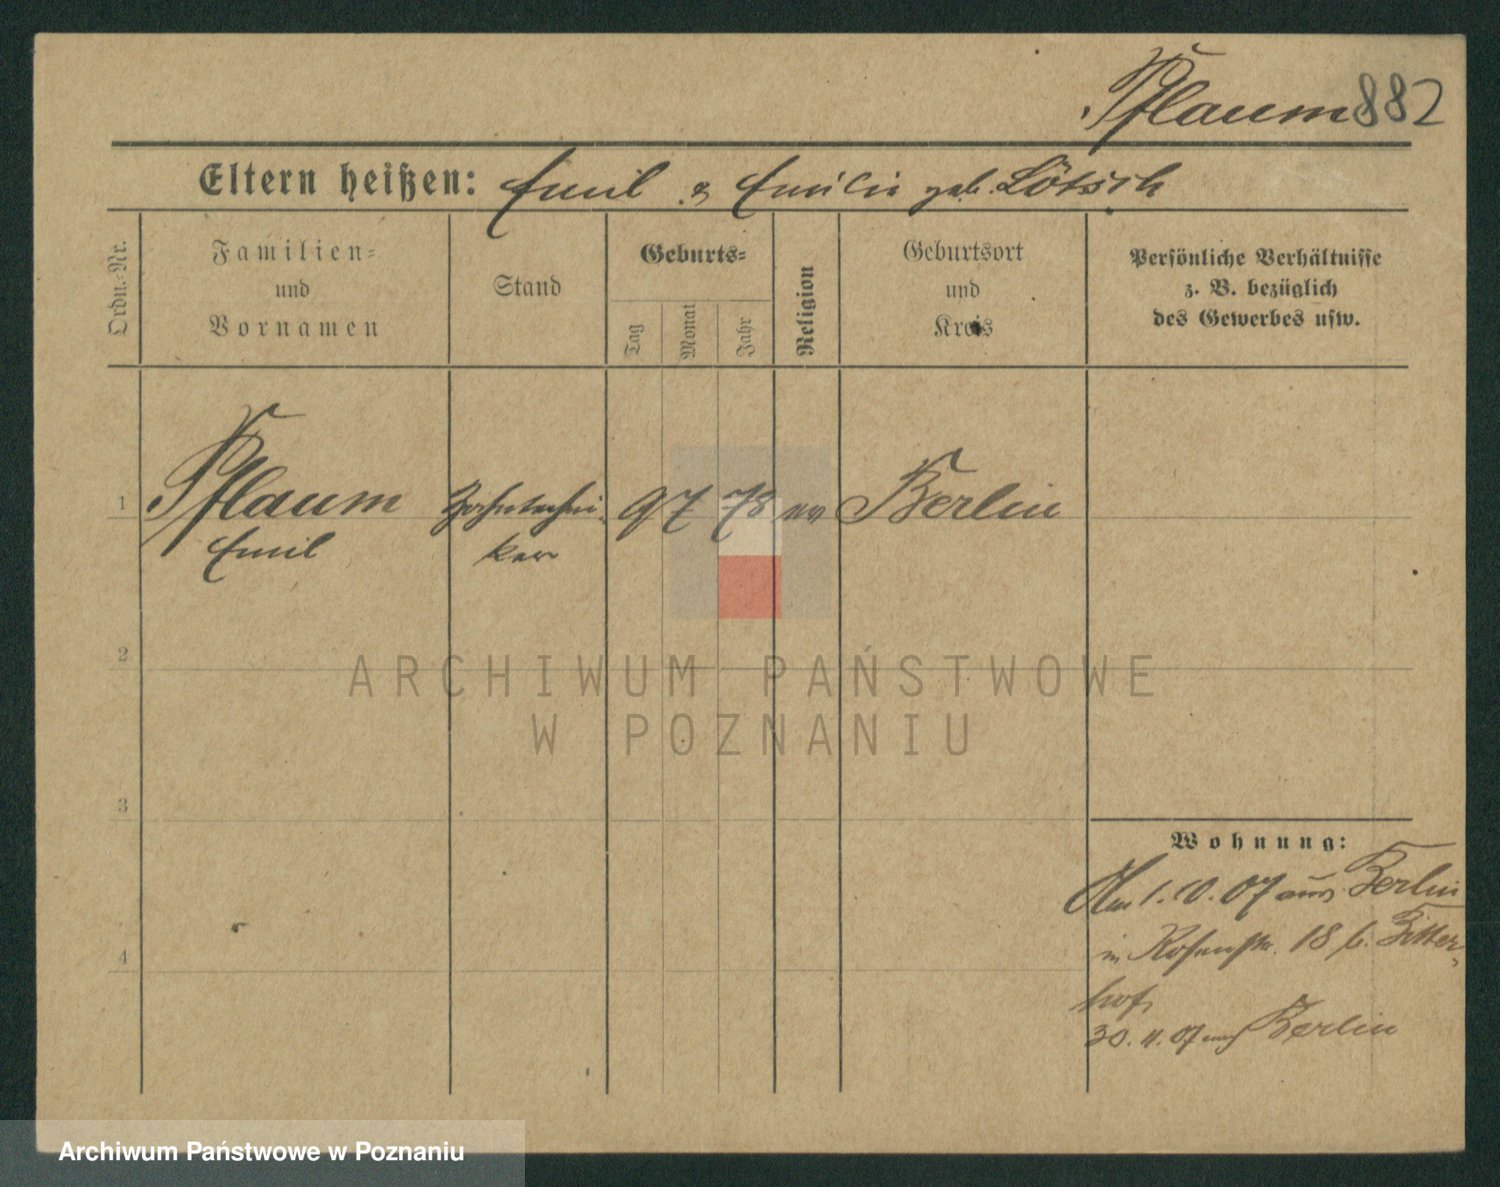 Pflaum 882
Eltern heißen: Emil & Emilie geb. Lötsch
Ordn.-Nr.
Familien-
und
Vornamen
Stand
Geburts-
Tag
Monat
Jahr
Religion
Geburtsort
und
Kreis
Persönliche Verhältnisse
z. B. bezüglich
des Gewerbes usw.
1 Pflaum Zahntechni- 9 7 78 ev Berlin
Emil ker
2
ARCHIWUM PAŃSTWOWE
W POZNANIU
3
Wohnung:
Am 1. 10. 07 aus Berlin
in Rosenstr. 18 b. Ritter-
4
hof,
30. 11. 07 nach Berlin
Archiwum Państwowe w Poznaniu